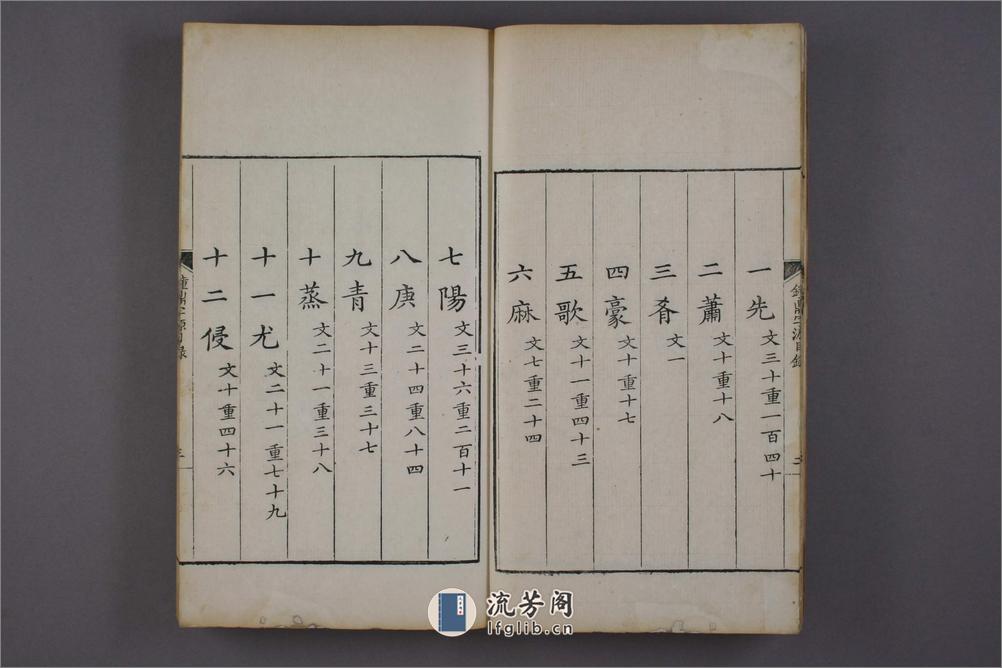 鐘鼎字源目錄
二
一先 文三十重一百四十
二蕭 文十重十八
三肴 文一
四豪 文十重十七
五歌 文十一重四十三
六麻 文七重二十四
七陽 文三十六重二百十一
八庚 文二十四重八十四
九青 文十三重三十七
十蒸 文二十一重三十八
十一尤 文二十一重七十九
十二侵 文十重四十六
鐘鼎字源目錄
三
流芳阁
lfglib.cn